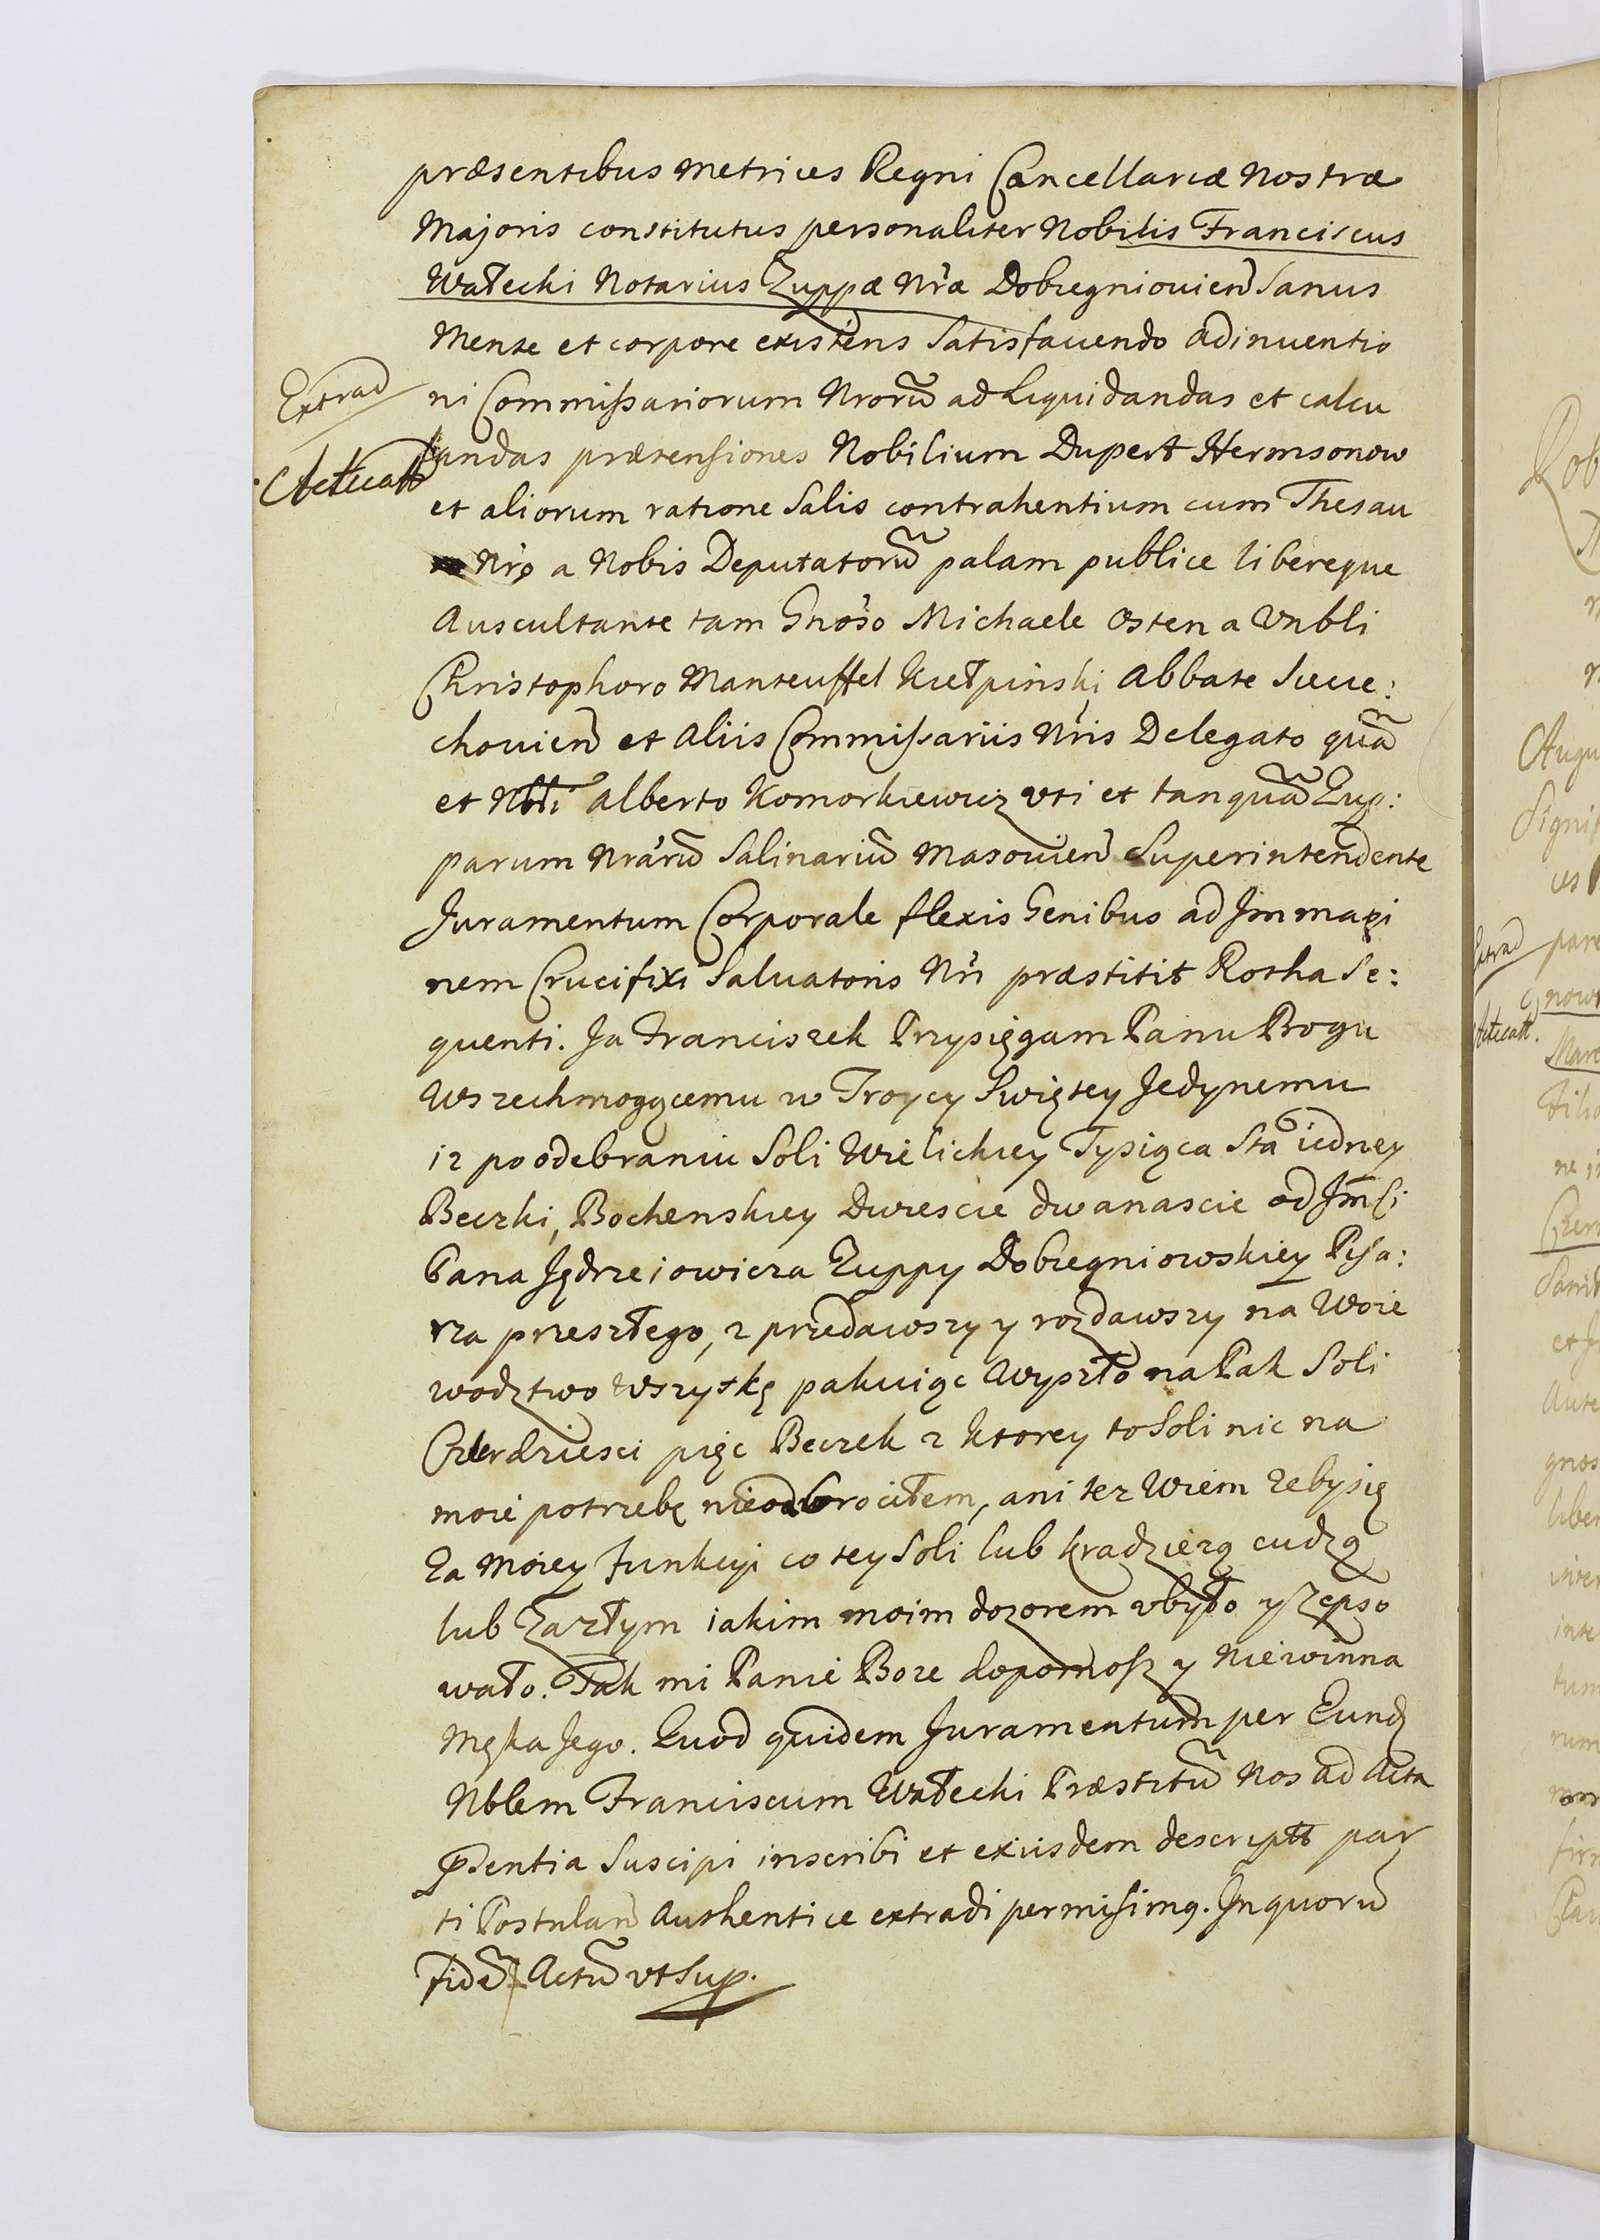 præsentibus Metrices Regni Cancellariæ Nostræ
Majoris constitutus personaliter Nobilis Franciscus
Wałecki Notarius Zuppæ Nræ Dobregniouien Sanus
Mente et corpore existens Satisfaciendo adinuentio
Extrad
ni Commissariorum Nrorũ ad Liquidandas et calcu
landas prætensiones Nobilium Dupert Hermsonow
Acticatt
et aliorum ratione Salis contrahentium cum Thesau
Nro a Nobis Deputatorũ palam publice libereque
Auscultante tam Gnoso Michaele Osten a Vnbli
Christophoro Manteuffel Kiełpinski Abbate Suue:
chouien et Aliis Commissariis Nris Delegato quã
et Nbli Alberto Komorkiewicz vti et tanquã Zup:
parum Nrarũ Salinariũ Masouien Superintendente
Juramentum Corporale flexis Genibus ad Jmmagi
nem Crucifixi Saluatoris Nri præstitit Rotha Se:
quenti. Ja Franciszek Przysięgam Panu Bogu
Wszechmogącemu w Troycy Swiętey Jedynemu
iz po odebraniu Soli Wielickiey Tysiąca Sta iedney
Beczki, Bochenskiey Dwiescie dwanascie od Jmści
Pana Jędrzeiowicza Zuppy Dobregniowskiey Pisa:
rza przeszłego, z przedawszy y rozdawszy na Woie
wodztwo Wszytkę pakuiąc Wyszło na Pak Soli
Czterdziesci pięc Beczek z ktorey to Soli nic na
moie potrzebę nieobrociłem, ani tez Wiem zeby się
Za Moiey Funkcyi co tey Soli lub kradzierzą cudzą
lub Za złym iakim moim dozorem vbyło y Zepso
wało. Tak mi Panie Boze dopomosz y Niewinna
Męka Jego. Quod quidem Juramentum per Eund
Nblem Franciscum Wałecki Præstitũ Nos ad Acta
Psentia Suscipi inscribi et eiusdem descriptt par
ti Postulan Authentice extradi permisimq. Jn quorũ
Fidẽ Actũ vt Sup.